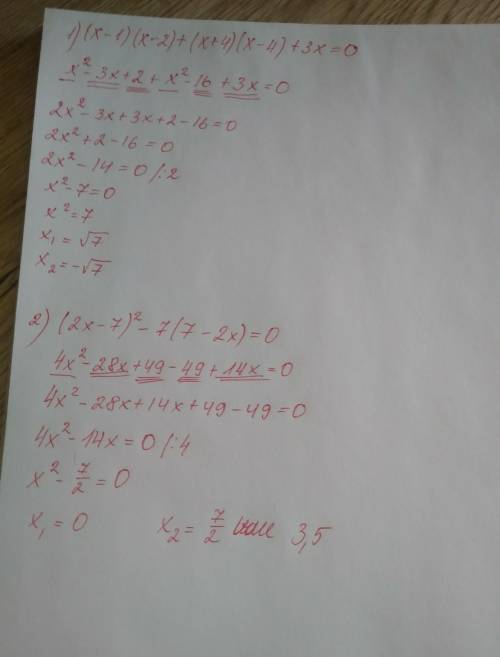 1) (x-1)(x-2)+(x+4)(x-4)+3x=0
x²-3x+2+x²-16+3x=0
2x²-3x+3x+2-16=0
2x²+2-16=0
2x²-14=0 /:2
x²-7=0
x²=7
x₁=√7
x₂=-√7
2) (2x-7)²-7(7-2x)=0
4x²-28x+49-49+14x=0
4x²-28x+14x+49-49=0
4x²-14x=0 /:4
x²-7/2=0
x₁=0 x₂=7/2 или 3,5